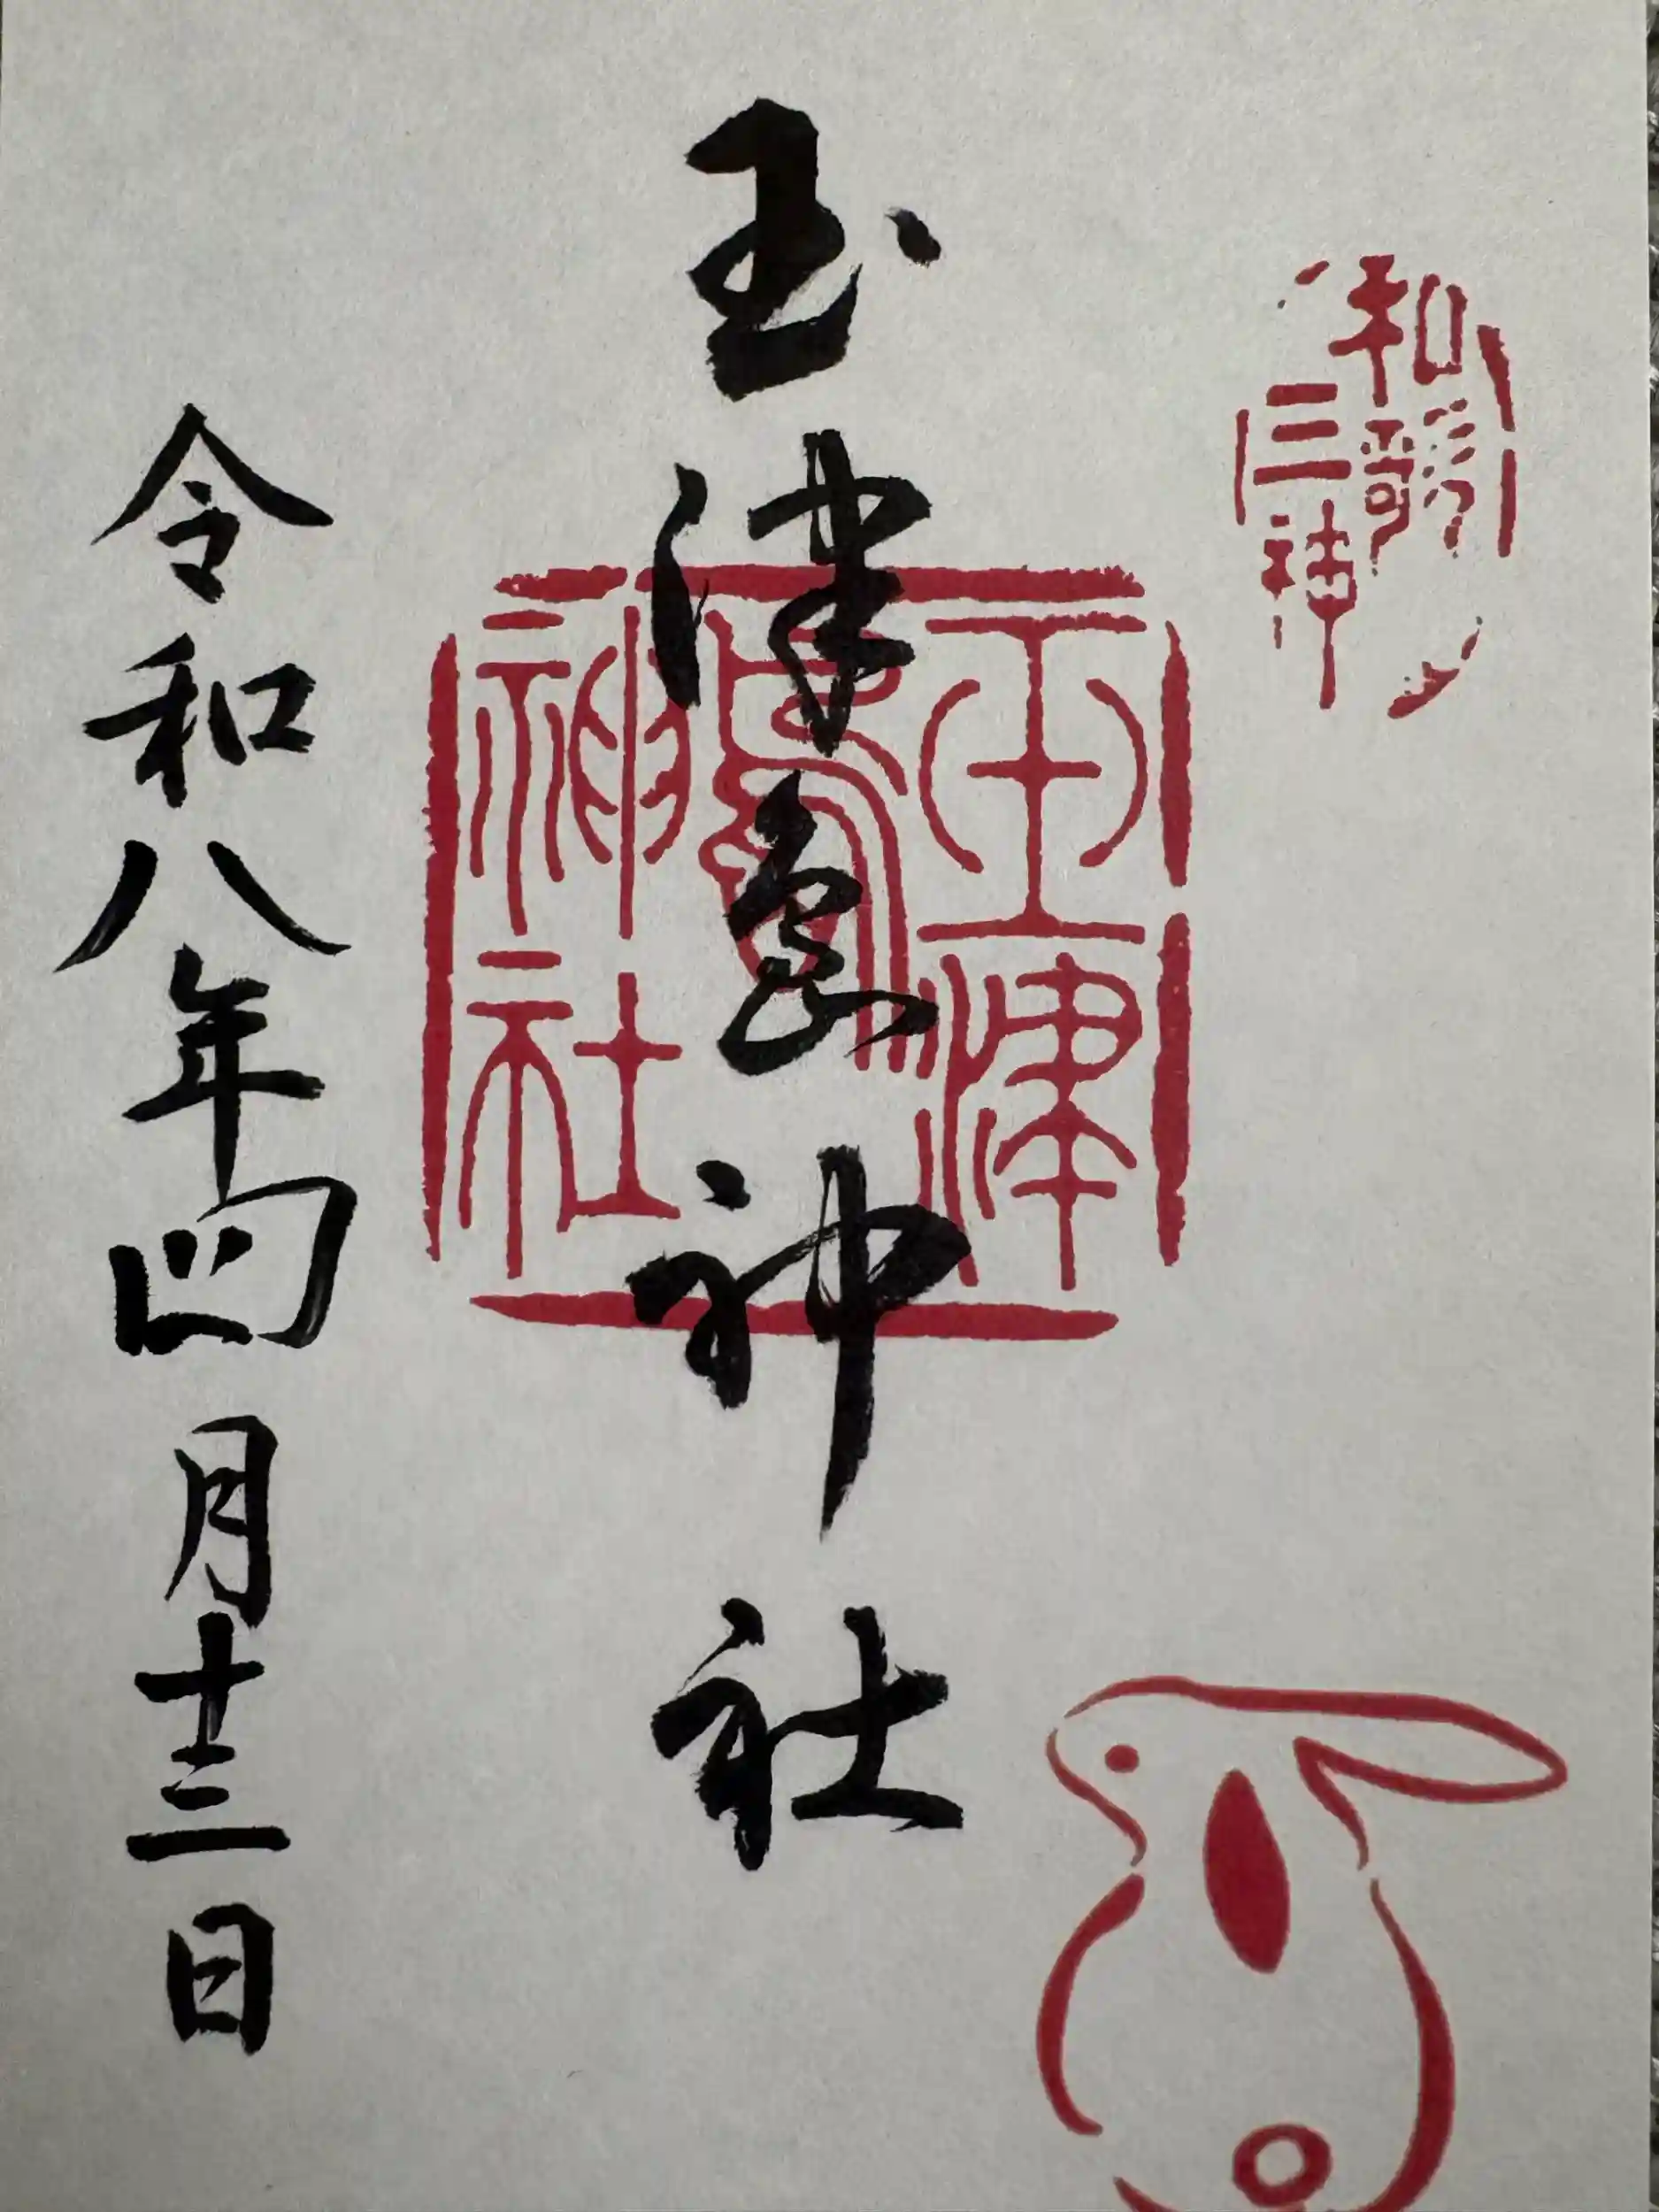 和歌
三神
玉津島神社
玉津
島
神社
令和八年四月十三日